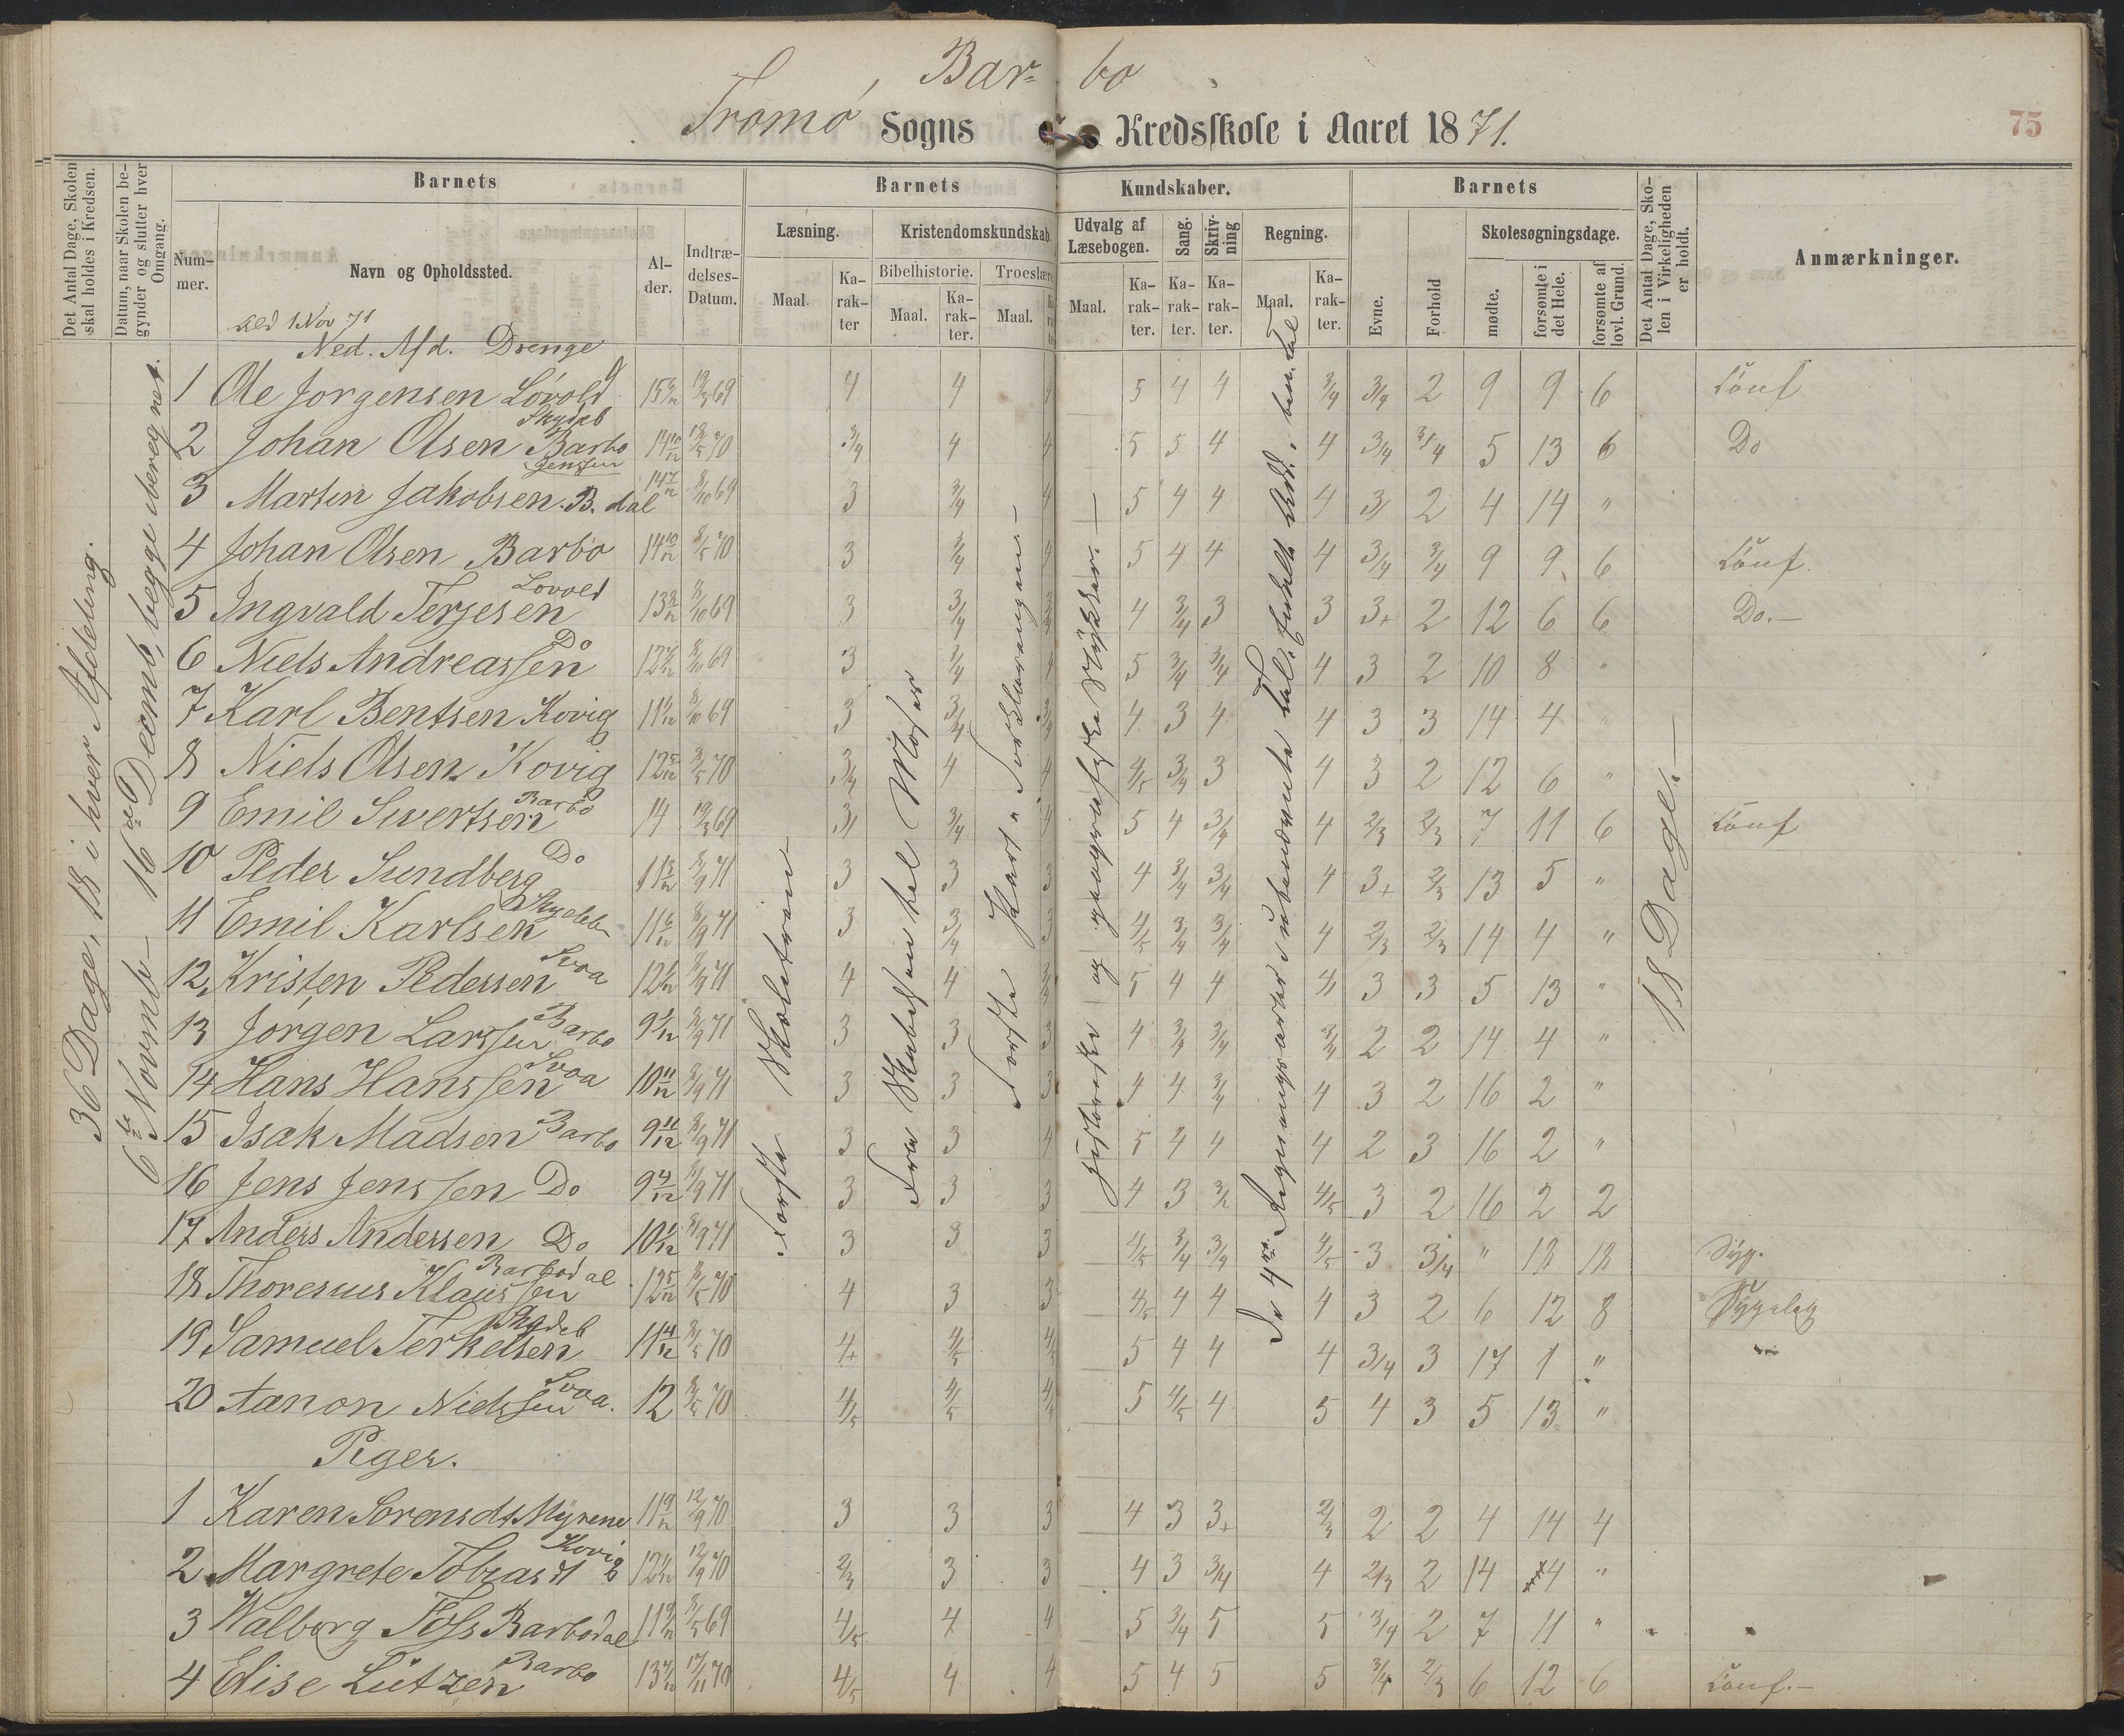 Bar- bo
Tromø Sogns Kredsskole i Aaret 1871.
75
Det Antal Dage, Skolen skal holdes i Kredsen.
Datum, naar Skolen begynder og slutter hver Omgang.
Barnets
Barnets
Kundskaber.
Barnets
Det Antal Dage, Skolen i Virkeligheden er holdt.
Anmærkninger.
Nummer.
Navn og Opholdssted.
Alder.
Indtrædelses-Datum.
Læsning.
Kristendomskundskab.
Udvalg af Læsebogen.
Sang.
Skrivning
Regning.
Evne.
Forhold
Skolesøgningsdage.
Maal.
Karakter
Bibelhistorie.
Troeslære
Maal.
Karakter.
Maal.
Maal.
Karakter.
Karakter.
Karakter.
Maal.
Karakter.
mødte.
forsømte i det Hele.
forsømte af lovl. Grund.
1 Nov 71
Ned. Afd. Drenge
36 Dage, 18 i hver Afdeling.
6te Novemb - 16de Decemb, begge iberegnet.
18 Dage.-
1 Ole Jorgensen Lövold 19/3 69 4 4 4 5 4 4 3/4 2 9 9 6 Conf
2 Johan Olsen Barbo 14 10/12 3/4 4 4 5 5 4 4 3/4 3/4 5 13 6 Do
3 Martin Jakobsen B.dal 14 7/12 8/10 69 3 3/4 4 5 4 4 4 3 2 4 14 "
4 Johan Olsen Barbo 14 10/12 8/5 70 3 3/4 4 5 4 4 4 3/4 3/4 9 9 6 Conf.
5 Ingvald Terjesen Lovold 13 8/12 8/10 69 3 3/4 3/4 4 3/4 3 3 3+ 2 12 6 6 Do.-
6 Niels Andreassen Do 8/10 69 3 3/4 4 5 3/4 3/4 4 3 2 10 8 "
7 Karl Bentsen Kovig 8/10 69 3 3/4 3/4 4 3 4 4 3 3 14 4 "
8 Niels Olsen Kovig 12 5/12 8/5 70 3/4 4 4 4/5 3/4 3 4 3 2 12 6 "
9 Emil Sivertsen Barbo 14 19/3 69 3 3/4 4 5 4 3/4 4 2/3 2/3 7 11 6 Conf
10 Peder Sundberg Do 11 3/12 8/9 71 3 3 3 4 3/4 3/4 4 3+ 2/3 13 5 "
11 Emil Karlsen 11 6/12 8/9 71 3 3/4 3 4/5 3/4 3/4 4 2/3 2/3 14 4 "
12 Kristen Pedersen Svoa 8/9 71 4 4 3/4 5 4 4 4 3 3 5 13 "
13 Jorgen Larssen Barbo 8/9 71 3 3 3 4 3/4 3/4 3/4 2 2 14 4 "
14 Hans Hanssen Svoa 10 11/12 8/9 71 3 3 3 4 4 3/4 4 3 2 16 2 "
15 Isak Madsen Barbo 9 11/12 8/9 71 3 3 4 5 4 4 4 2 3 16 2 "
16 Jens Jenssen Do 9 4/12 8/9 71 3 3 3 4 3 4/5 3 2 16 2 2
17 Anders Andersen Do 8/9 71 3 3 3 4/5 3/4 3/4 4/5 3 3/4 " 18 18 Syg.
18 Thoresius Klaussen Barbodal 12 5/12 8/5 70 4 3 3 4/5 4 4 4 3 2 6 12 8 Sygelig
19 Samuel Terkelsen 11 4/12 8/5 70 4+ 4/5 4/5 5 4 4 4 3/4 3 17 1 "
20 Aanon Nielssen Svoa. 12 8/5 70 4/5 4/5 4/5 5 4/5 4 5 4 3 5 13 "
Piger.
1 Karen Sorensdt Myrene 11 9/12 12/9 70 3 3 3 4 3 3+ 2/3 2 2 4 14 4
2 Margrete Tobiasdt Kovig 12/9 70 2/3 3 3 4 3 3/4 4 2/3 2 14 4 "
3 Walborg Foss Barbodal 11 9/12 8/5 69 4/5 4 4 5 3/4 5 5 3/4 2 7 11 "
4 Elise Lützen Barbo 17/11 70 4/5 4 4 5 4 5 5 3/4 2/3 6 12 6 Conf.-
Første Skoletrin-
Fra Skabelsen til Moses
Første Part " Forklaringen.-
Historiske og geografiske Stykker.-
De 4re Regningsarter i ubenævnte Tal.